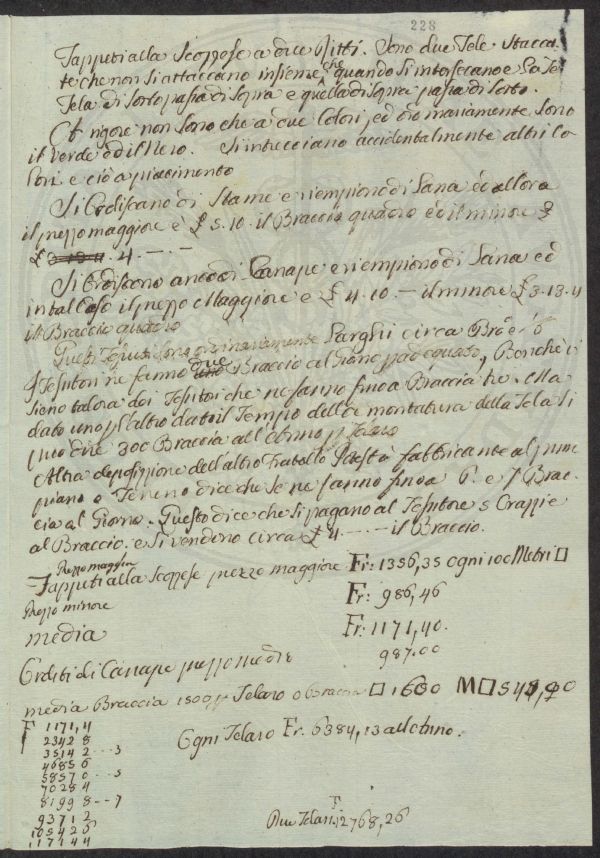 228
Tappeti alla Scozzese a due Ritti. Sono due Tele stacca-
te che non si attaccano insieme che quando si intersecano e la
Tela di sotto passa di sopra e quella di sopra passa di sotto.
A rigore non sono che a due Colori, ed ordinariamente sono
il verde ed il Nero. Si intrecciano accidentalmente altri co-
lori e ciò a piacimento
Si Ordiscano di Stame e riempiono di Lana ed allora
il prezzo maggiore è £ 5.10. il Braccio quadro ed il minore
£ 4. — . —
Si Ordiscono anco di Canape e riempiono di Lana ed
in tal Caso il prezzo Maggiore è £ 4.10. — il minore £ 3.13.4
il Braccio quadro
Questi Tessuti sono ordinariamente Larghi circa Bra e 6
I Tessitori ne fanno due Braccia al Giorno, Benchè vi
siano talora dei Tessitori che ne fanno fino a Braccia tre. Ma
dato uno p. l'altro dato il Tempo della montatura della Tela si
può dire 300 Braccia all'Anno p. Telaro
Altra deposizione dell'altro Fratello fabbricante al prim
piano o Terreno dice che se ne fanno fino a 6. e 7 Brac-
cia al Giorno. Questo dice che si pagano al Tessitore 5 Crazzie
al Braccio e si vendono circa £ 4 — . — il Braccio.
Prezzo maggior
Tappeti alla Scozzese prezzo maggiore Fr: 1356,35 Ogni 100 Metri □
Prezzo minore Fr: 986,46
media Fr: 1171,40.
Orditi di Canape prezzo medio 987.00
media Braccia 1500 p. Telaro o Braccia □ 1600 M□ 545,00
F 1171,4
2342 8
3514 2 - - - 3
4685 6
5857 0 - - - 5
7028 4
8199 8 - - 7
9371 2
10542 6
11714 4
Ogni Telaro Fr. 6384,13 all'Anno.
Due Telari F. 12768,26